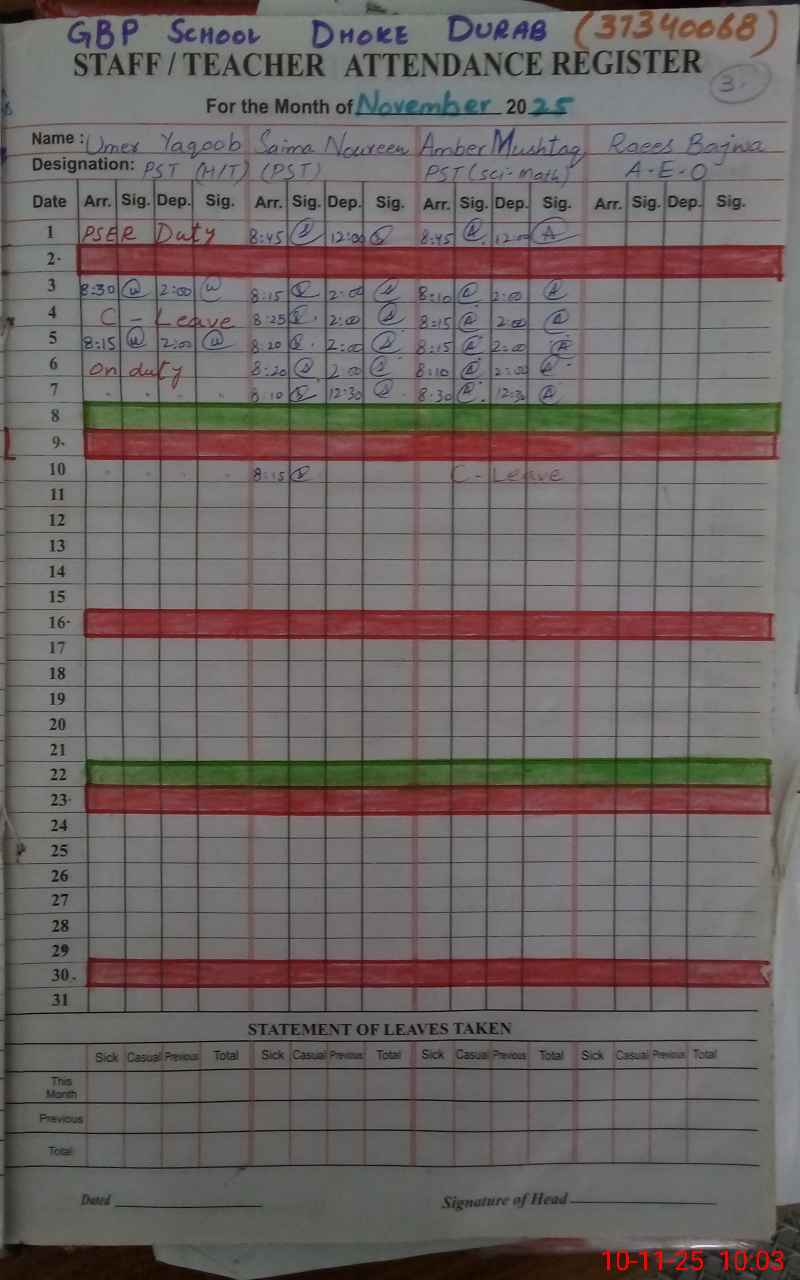 GBP SCHOOL DHOKE DURAB (37340068)
STAFF / TEACHER ATTENDANCE REGISTER
3.
For the Month of November 2025
Name : Umer Yaqoob Saima Noureen Amber Mushtaq Raees Bajwa
Designation: PST (H/T) (PST) PST (sci-math) A.E.O
Date Arr. Sig. Dep. Sig. Arr. Sig. Dep. Sig. Arr. Sig. Dep. Sig. Arr. Sig. Dep. Sig.
1 PSER Duty 8:45 12:00 8:45 12:00
2
3 8:30 2:00 8:15 2:00 8:10 2:00
4 C - Leave 8:25 2:00 8:15 2:00
5 8:15 2:00 8:20 2:00 8:15 2:00
6 on duty 8:20 2:00 8:10 2:00
7 8:10 12:30 8:30 12:30
8
9
10 8:15 C - Leave
11
12
13
14
15
16
17
18
19
20
21
22
23
24
25
26
27
28
29
30
31
STATEMENT OF LEAVES TAKEN
Sick Casual Previous Total Sick Casual Previous Total Sick Casual Previous Total Sick Casual Previous Total
This
Month
Previous
Total
Dated
Signature of Head
10-11-25 10:03